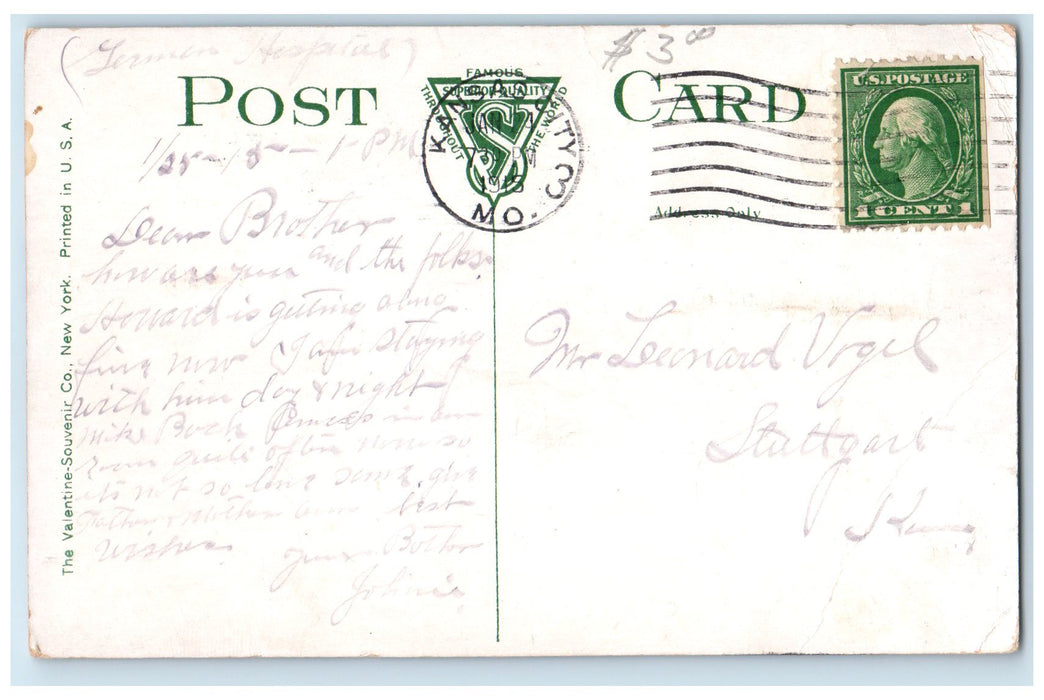 (German Hospital)
$3.00
POST CARD
FAMOUS
SUPERIOR QUALITY
THROUGHOUT
THE WORLD
VS
KANSAS CITY 3
JAN
1915
MO.
U.S. POSTAGE
1 CENT 1
Address Only
1/25-15-1-PM
Dear Brother
how are you and the folks
Howard is getting along
fine now I am staying
with him day & night
Mike Bock comes in our
room quite often now so
its not so lone some. give
Father & Mother our best
wishes.
Your Brother
Johnie
Mr Leonard Vogel
Stuttgart
Kans
The Valentine-Souvenir Co., New York. Printed in U.S.A.